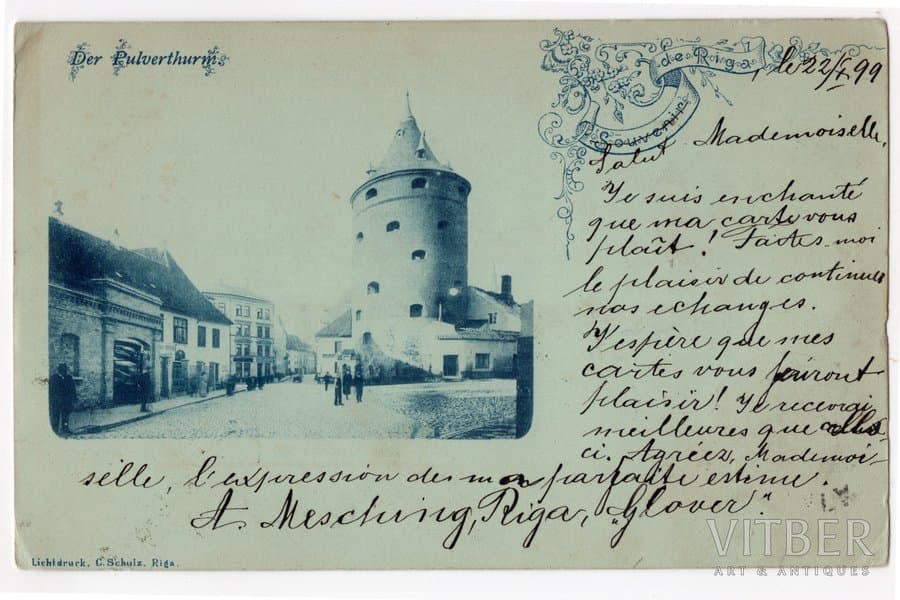 Der Pulverthurm.
Souvenir de Riga, le 22/X 99
Salut Mademoiselle,
Je suis enchanté
que ma carte vous
plaît! Faites-moi
le plaisir de continuer
nos echanges.
J'espère que mes
cartes vous feront
plaisir! Je recevrai
meilleures que celles
ci. Agréez, Mademoi-
selle, l'expression de ma parfaite estime.
A. Mesching, Riga, "Glover".
Lichtdruck, C. Schulz, Riga.
VITBER
ART & ANTIQUES